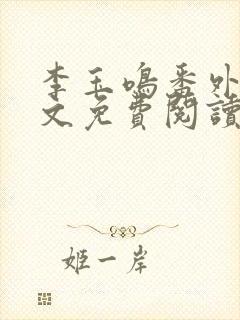 李玉鳴番外
文免費閱讀
姬一岸